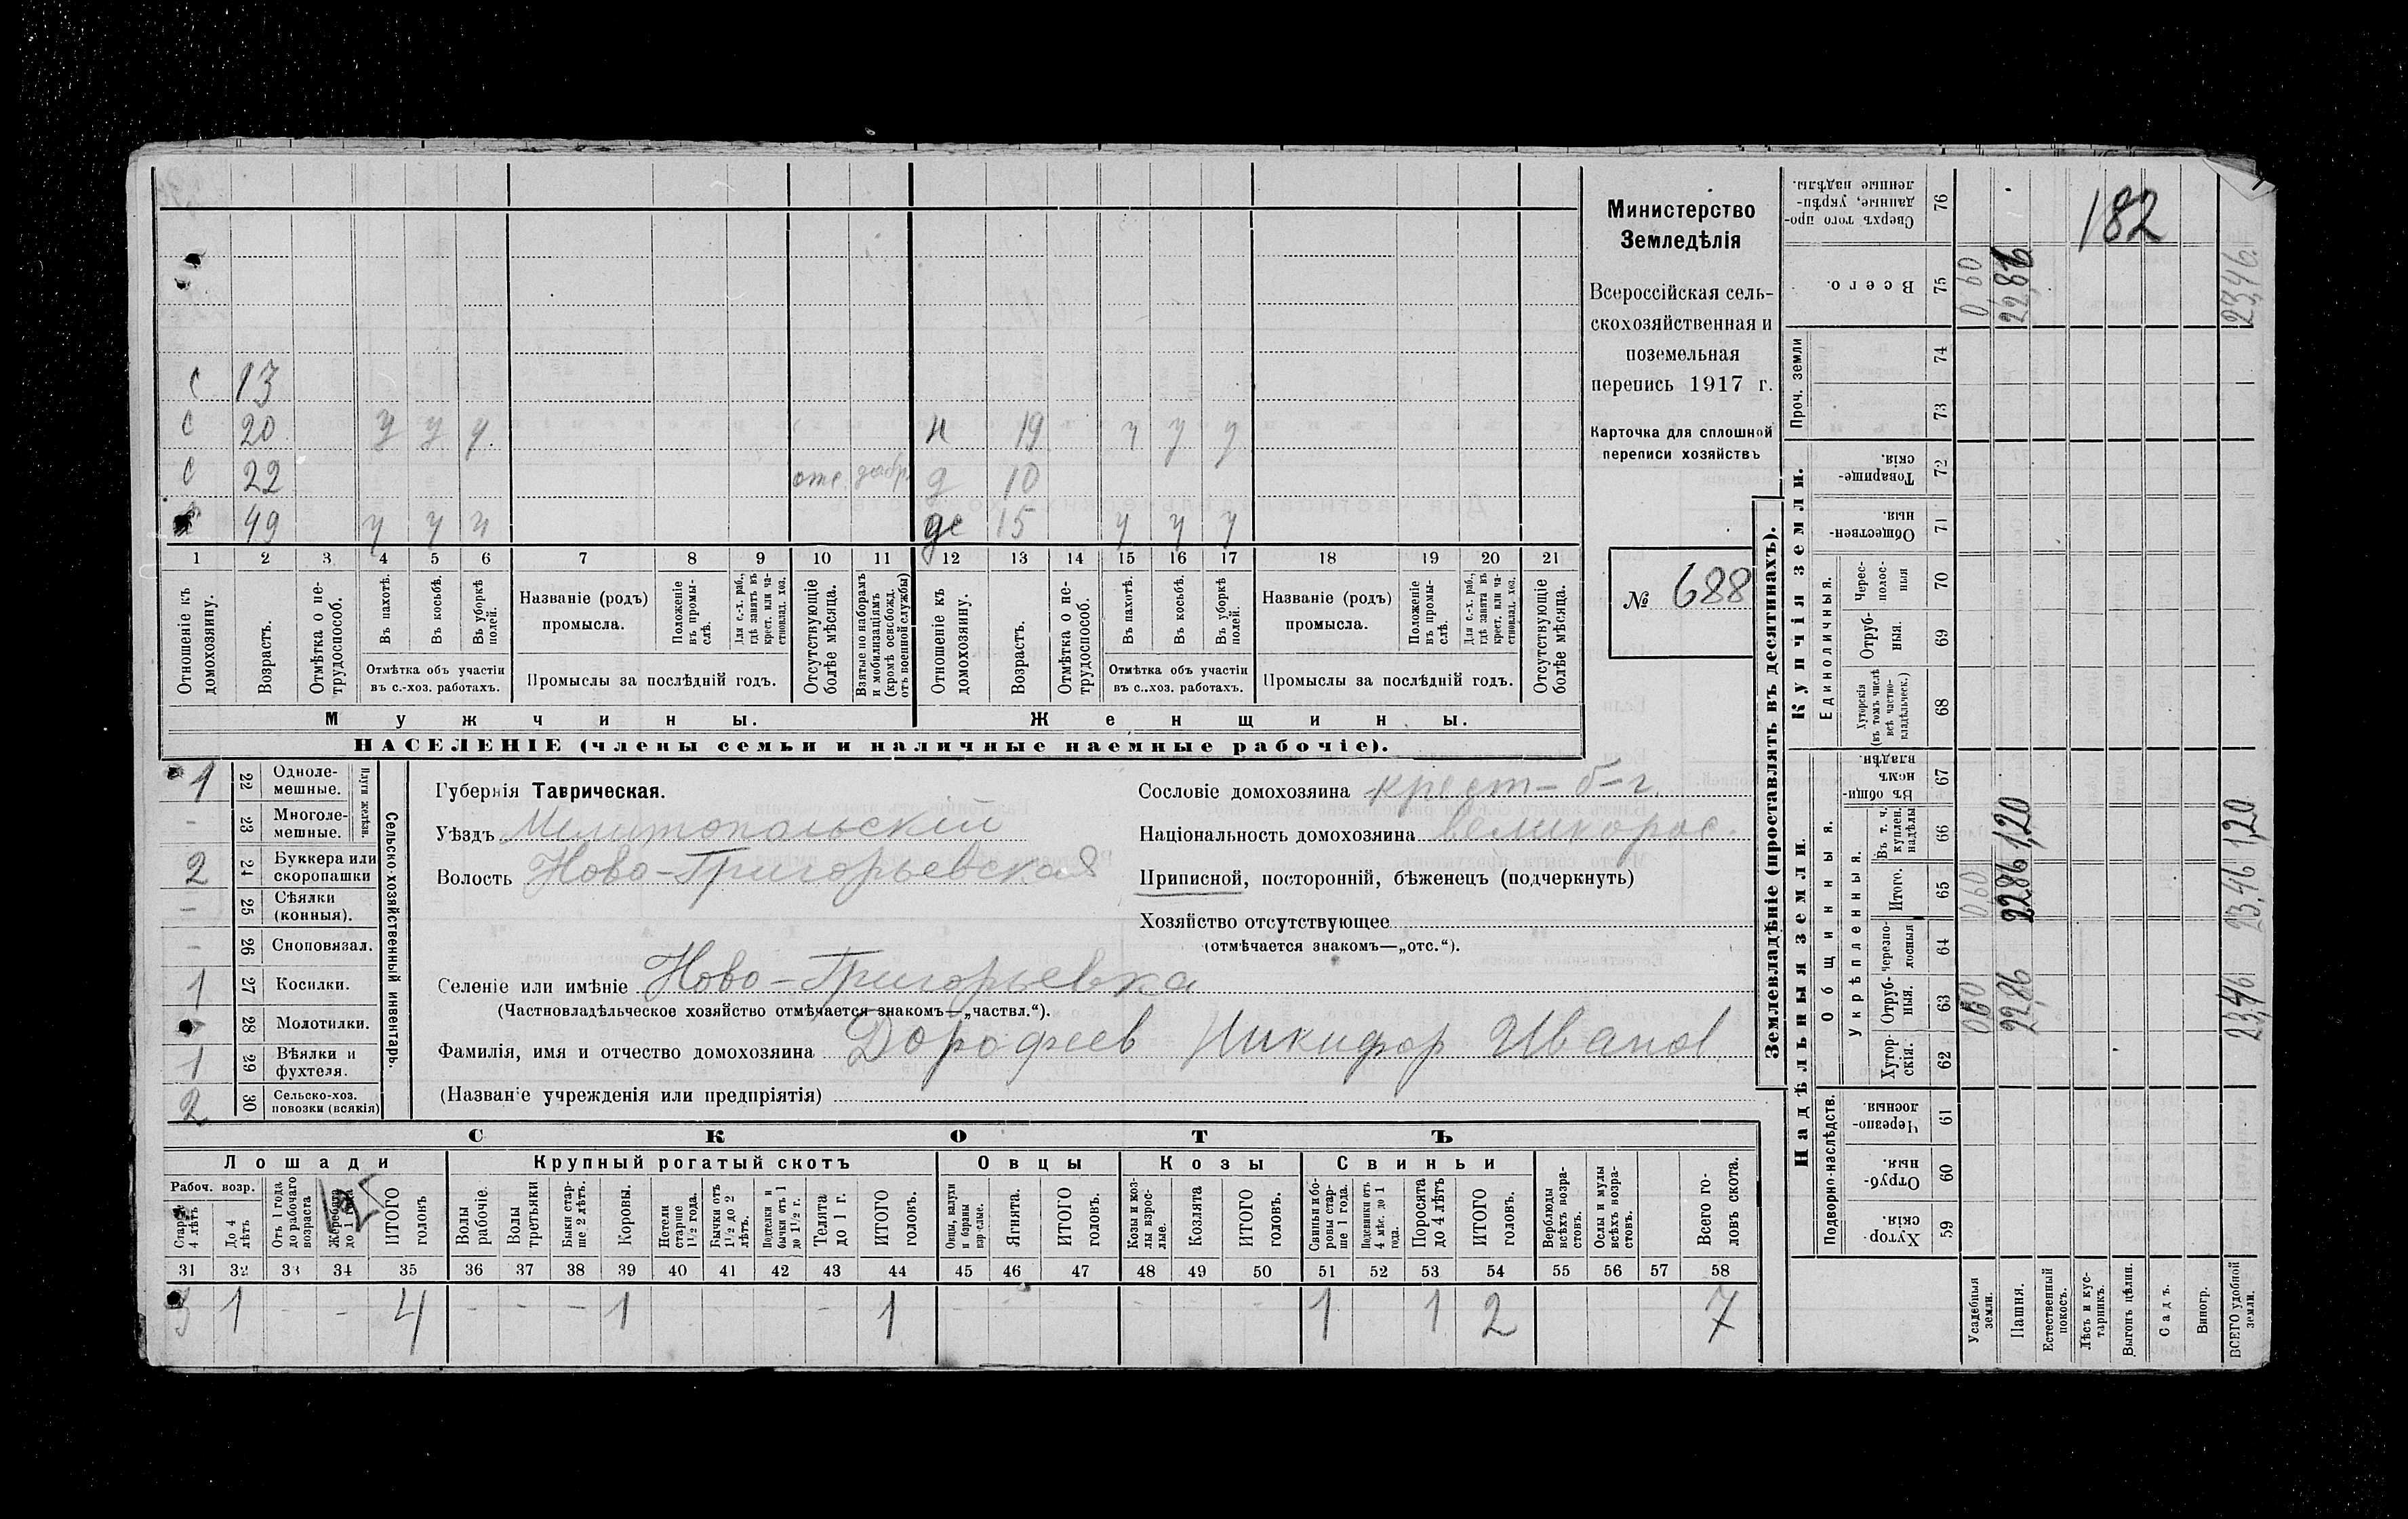 Министерство
Земледѣлія
Всероссійская сель-
скохозяйственная и
поземельная
перепись 1917 г.
Карточка для сплошной
переписи хозяйствъ
№ 688
182
с 13
с 20 у у у н 19 у у у
с 22 отс. д 10
49 у у у дс 15 у у у
1 2 3 4 5 6 7 8 9 10 11 12 13 14 15 16 17 18 19 20 21
Отношеніе къ домохозяину.
Возрастъ.
Отмѣтка о не-трудоспособ.
Въ пахотѣ.
Въ косьбѣ.
Въ уборкѣ полей.
Отмѣтка объ участіи въ с.-хоз. работахъ.
Названіе (родъ) промысла.
Положеніе въ промы-слѣ.
Для с.-х. раб., гдѣ занятъ въ крест. или ча-стновлад. хоз.
Промыслы за послѣдній годъ.
Отсутствующіе болѣе мѣсяца.
Взятые по наборамъ и мобилизаціямъ (кромѣ освобожд. отъ военной службы)
Отношеніе къ домохозяину.
Возрастъ.
Отмѣтка о не-трудоспособ.
Въ пахотѣ.
Въ косьбѣ.
Въ уборкѣ полей.
Отмѣтка объ участіи въ с.-хоз. работахъ.
Названіе (родъ) промысла.
Положеніе въ промы-слѣ.
Для с.-х. раб., гдѣ занята въ крест. или ча-стновлад. хоз.
Промыслы за послѣдній годъ.
Отсутствующіе болѣе мѣсяца.
Мужчины. Женщины.
НАСЕЛЕНІЕ (члены семьи и наличные наемные рабочіе).
1 22 Одноле-мешные.
- 23 Многоле-мешные.
Плуги желѣзн.
2 24 Буккера или скоропашки
- 25 Сѣялки (конныя).
- 26 Сноповязал.
1 27 Косилки.
28 Молотилки.
1 29 Вѣялки и фухтеля.
2 30 Сельско-хоз. повозки (всякія)
Сельско-хозяйственный инвентарь.
Губернія Таврическая.
Уѣздъ Мелитопольскій
Волость Ново-Григорьевская
Селеніе или имѣніе Ново-Григорьевка
(Частновладѣльческое хозяйство отмѣчается знакомъ—„частвл.“).
Фамилія, имя и отчество домохозяина Дорофеев Никифор Иванов.
(Названіе учрежденія или предпріятія)
Сословіе домохозяина крест-
Національность домохозяина великорос.
Приписной, посторонній, бѣженецъ (подчеркнуть)
Хозяйство отсутствующее
(отмѣчается знакомъ—„отс.“).
СКОТЪ
Лошади Крупный рогатый скотъ Овцы Козы Свиньи
Рабоч. возр.
Старше 4 лѣтъ
До 4 лѣтъ
Отъ 1 года до рабочаго возраста
Жеребята до 1 года
ИТОГО головъ
Волы рабочіе.
Волы третьяки
Быки стар-ше 2 лѣтъ.
Коровы.
Нетели старше 1½ года.
Бычки отъ 1½ до 2 лѣтъ.
Подтелки и бычки отъ 1 до 1½ г.
Телята до 1 г.
ИТОГО головъ.
Овцы, валухи и бараны взрослые.
Ягнята.
ИТОГО головъ.
Козы и коз-лы взрос-лые.
Козлята
ИТОГО головъ.
Свиньи и бо-ровы стар-ше 1 года.
Подсвинки отъ 4 мѣс. до 1 года.
Поросята до 4 лѣтъ
ИТОГО головъ.
Верблюды всѣхъ возра-стовъ.
Ослы и мулы всѣхъ возра-стовъ.
Всего го-ловъ скота.
31 32 33 34 35 36 37 38 39 40 41 42 43 44 45 46 47 48 49 50 51 52 53 54 55 56 57 58
3 1 - - 4 - - - 1 - 1 - - - - - 1 1 2 7
Землевладѣніе (проставлять въ десятинахъ).
Надѣльныя земли. Купчія земли. Проч. земли
Подворно-наслѣдств.
Общинныя.
Укрѣпленныя.
Единоличныя.
Хутор-скія. 59
Отруб-ныя. 60
Черезпо-лосныя. 61
Хутор-скія. 62
Отруб-ныя. 63
Черезпо-лосныя 64
Итого. 65
Въ т. ч. куплен. надѣлы 66
Въ общи-нномъ владѣн. 67
Хуторскія (въ томъ числѣ всѣ частно-владѣльческ.) 68
Отруб-ныя. 69
Черес-полос-ныя 70
Обществен-ныя. 71
Товарище-скія. 72
73
74
Всего. 75
Сверхъ того про-данные, укрѣп-ленные надѣлы. 76
Усадебныя земли. 0,60 0,60 0,60
Пашня. 22,86 22,86 1,20 22,86
Естественный покосъ.
Лѣсъ и кус-тарникъ.
Выгонъ цѣлин.
Садъ.
Виногр.
ВСЕГО удобной земли. 23,46 23,46 1,20 23,46